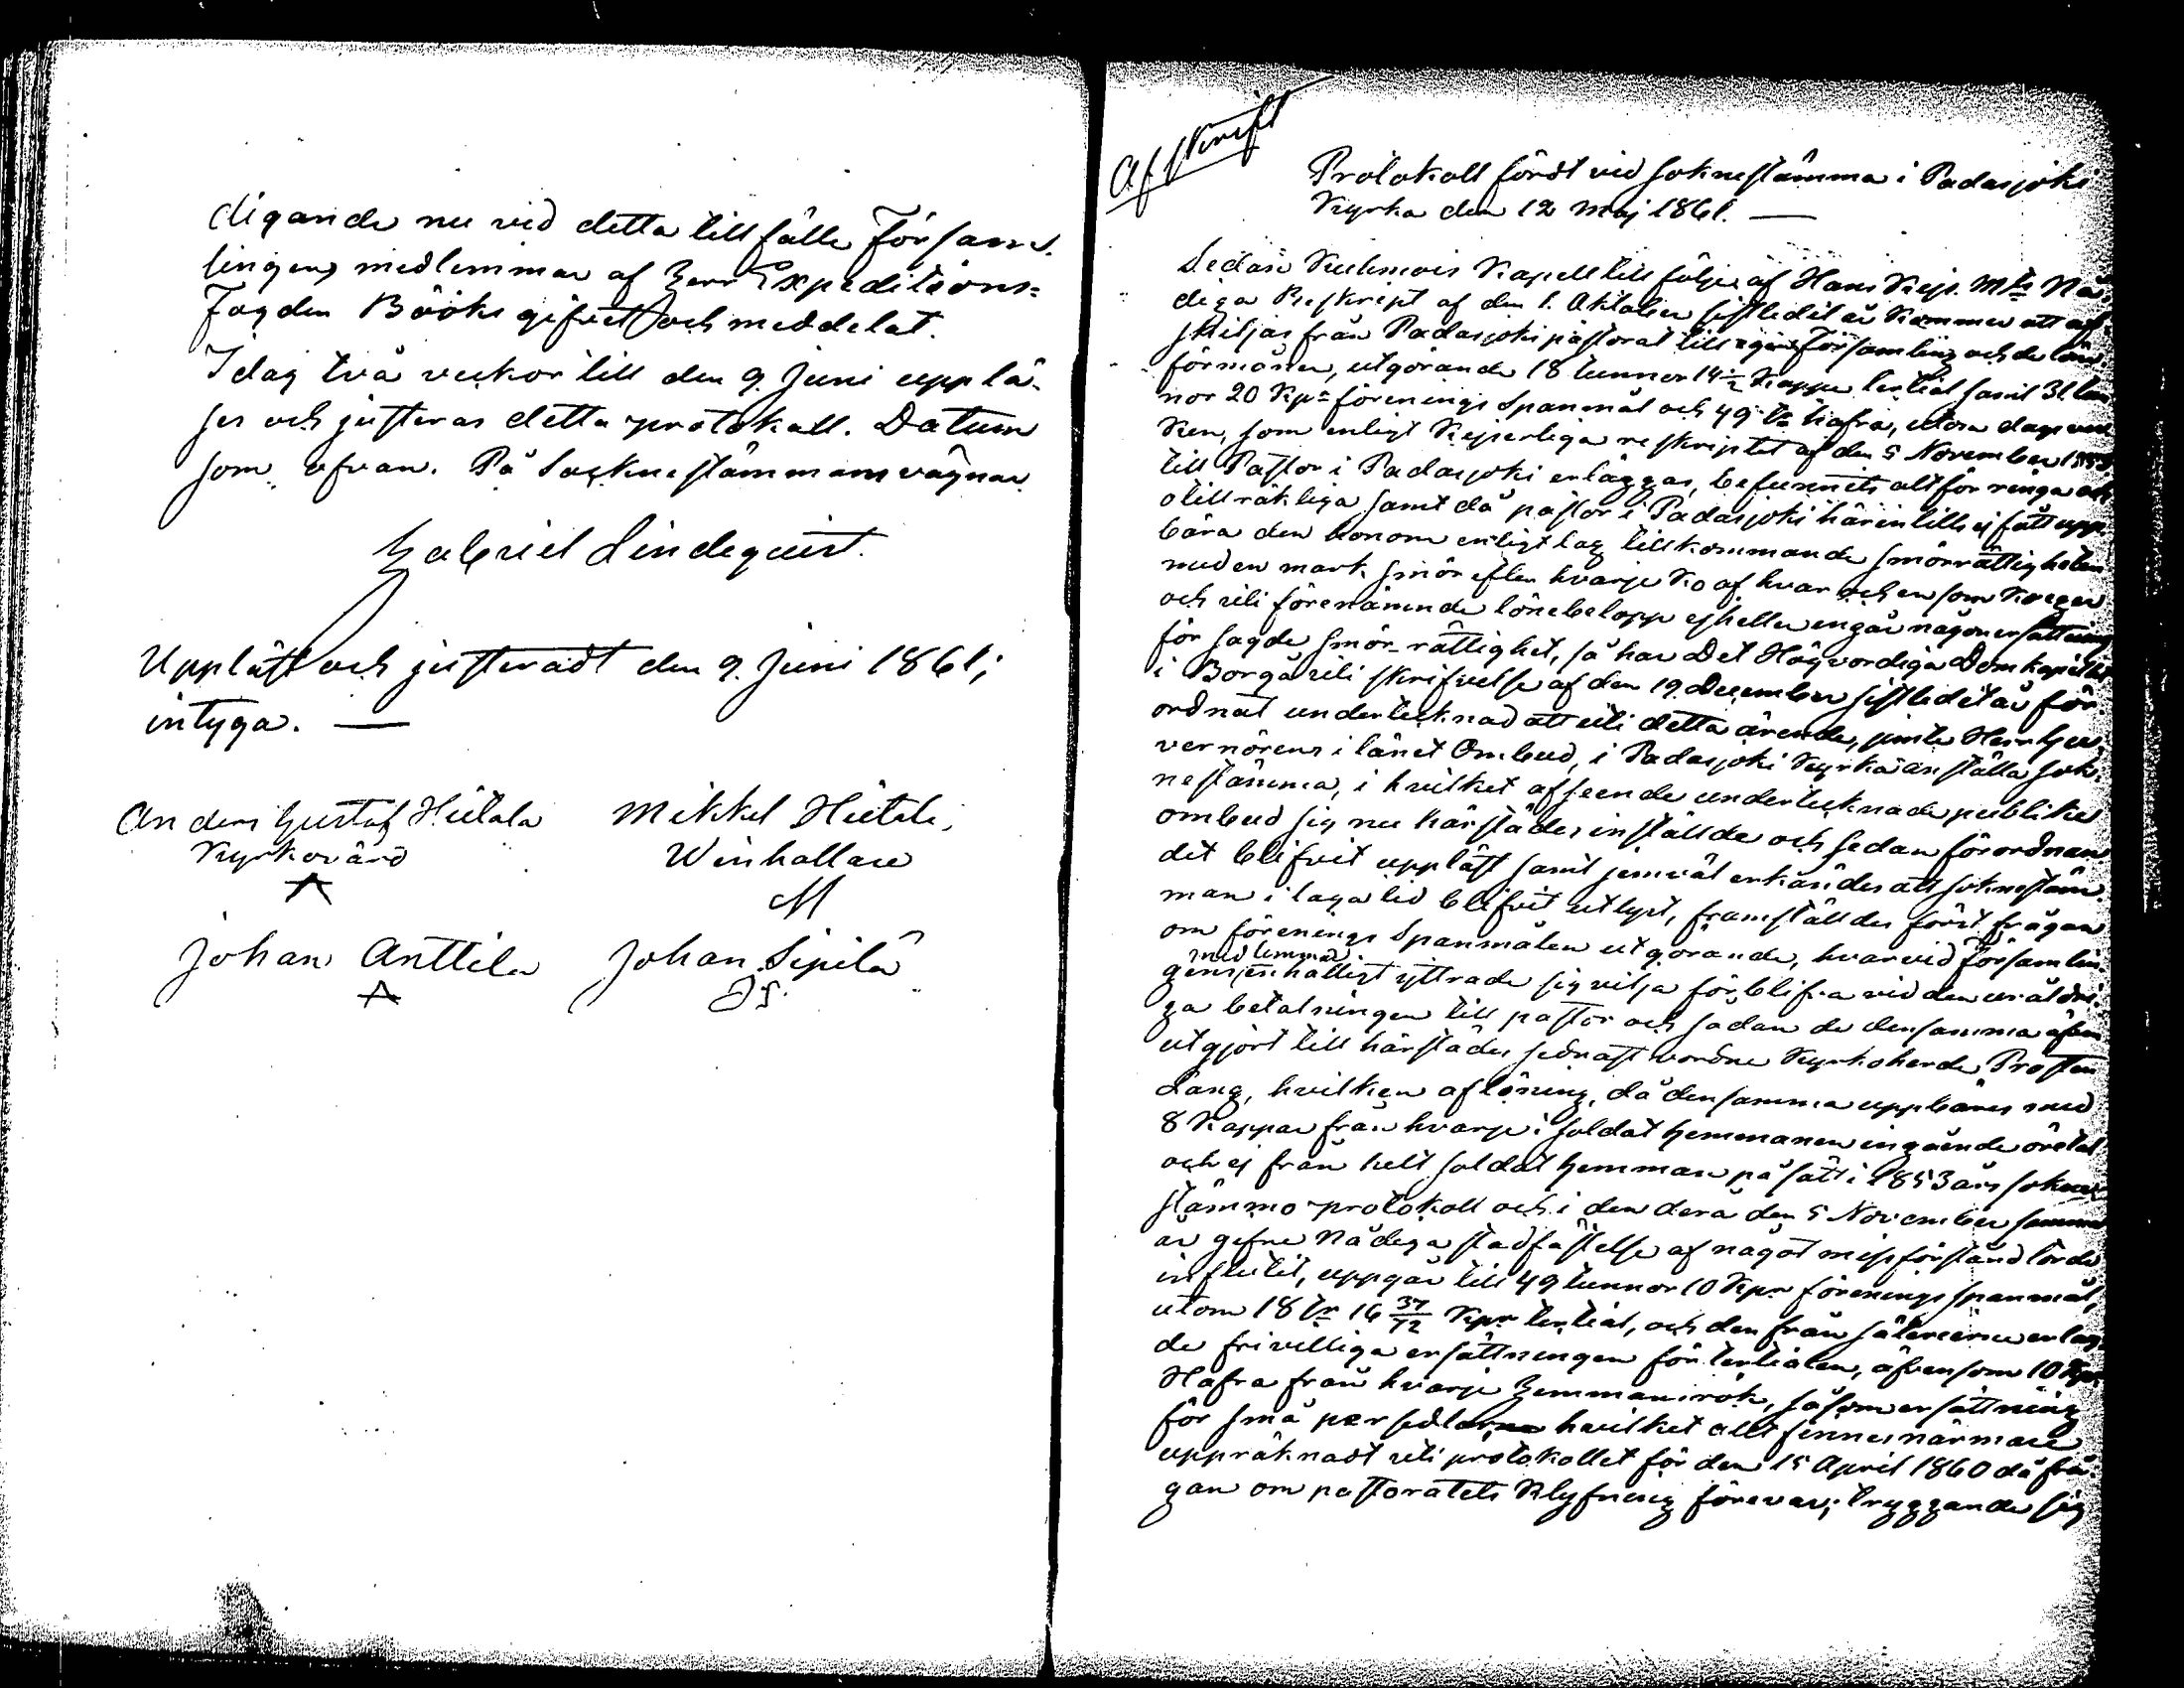 digande nu vid detta tillfälle Försam-
lingens medlemmar af Herr Expeditions-
Fogden Bööks gifvet och meddelat.
Idag två veckor till den 9 Juni upplä-
ses och justeras detta protokoll. Datum
som ofvan. På Socknestämmans vägnar
Gabriel Lindequist.
Uppläst och justeradt den 9. Juni 1861;
intyga. —
Anders Gustaf Hietala Mikkel Hietala,
Kyrkovärd Weinhallare
A M
Johan Anttila Johan Sipilä
A JS.
Afskrift
Protokoll fördt vid soknestämma i Padasjoki
Kyrka den 12 Maj 1861. —
Sedan Kuhmois Kapell till följe af Hans Kejs. Mts Nå-
diga Reskript af den 1. Oktober sistledit år kommer att af-
skiljas från Padasjoki pastorat till egen Församling och de löne-
förmåner, utgörande 18 tunnor 14½ kappe tertial samt 31 tun-
nor 20 Kpr förenings Spanmål och 49 tr hafra, utom dagsver-
ken, som enligt Kejserliga reskriptet af den 5 November 1853
till Pastor i Padasjoki erläggas, befunnits altför ringa och
otillräkliga samt då pastor i Padasjoki härintills ej fått upp-
bära den honom enligt lag tillkommande smörrättigheten
med en mark smör efter hvarje ko af hvar och en som ko eger
och uti förenämnde lönebelopp ejheller ingår någon ersättning
för sagde smör-rättighet, så har Det Högvordiga Domkapitlet
i Borgå uti skrifvelse af den 19 December sistledit år för-
ordnat undertecknad att uti detta ärende, jemte Herr Gu-
vernörens i länet Ombud, i Padasjoki Kyrka anställa sok-
nestämma, i hvilket afseende undertecknade publike
ombud sig nu härstädes inställde och sedan förordnan-
det blifvit uppläst samt jemväl erkändes att soknestäm-
man i laga tid blifvit utlyst, framställdes först frågan
om förenings Spanmålen utgörande, hvarvid församlin-
gens medlemmar enhälligt yttrade sig vilja förblifva vid den uråldri-
ga betalningen till pastor och sådan de densamma äfven
utgjort till härstädes sednast vordne Kyrkoherde, Prosten
Lang, hvilken aflöning, då densamma uppbäres med
8 Kappar från hvarje i soldat hemmanen ingående öretal
och ej från helt soldat hemman på sätt i 1853 års sokne-
stämmo-protokoll och i den derå den 5 November samma
år gifne Nådiga stadfästelse af något missförstånd torde
influtit, uppgår till 49 tunnor 10 Kpr förenings spanmål,
utom 18 tr 16 37/72 Kpr tertial, och den från säterierne erlag-
de frivilliga ersättningen för tertialen, äfvensom 10 Kpr
Hafra från hvarje Hemmansrök, såsom ersättning
för små persedlarna hvilket allt finnes närmare
uppräknadt uti protokollet för den 15 April 1860 då frå-
gan om pastoratets klyfning förevar; tryggande sig